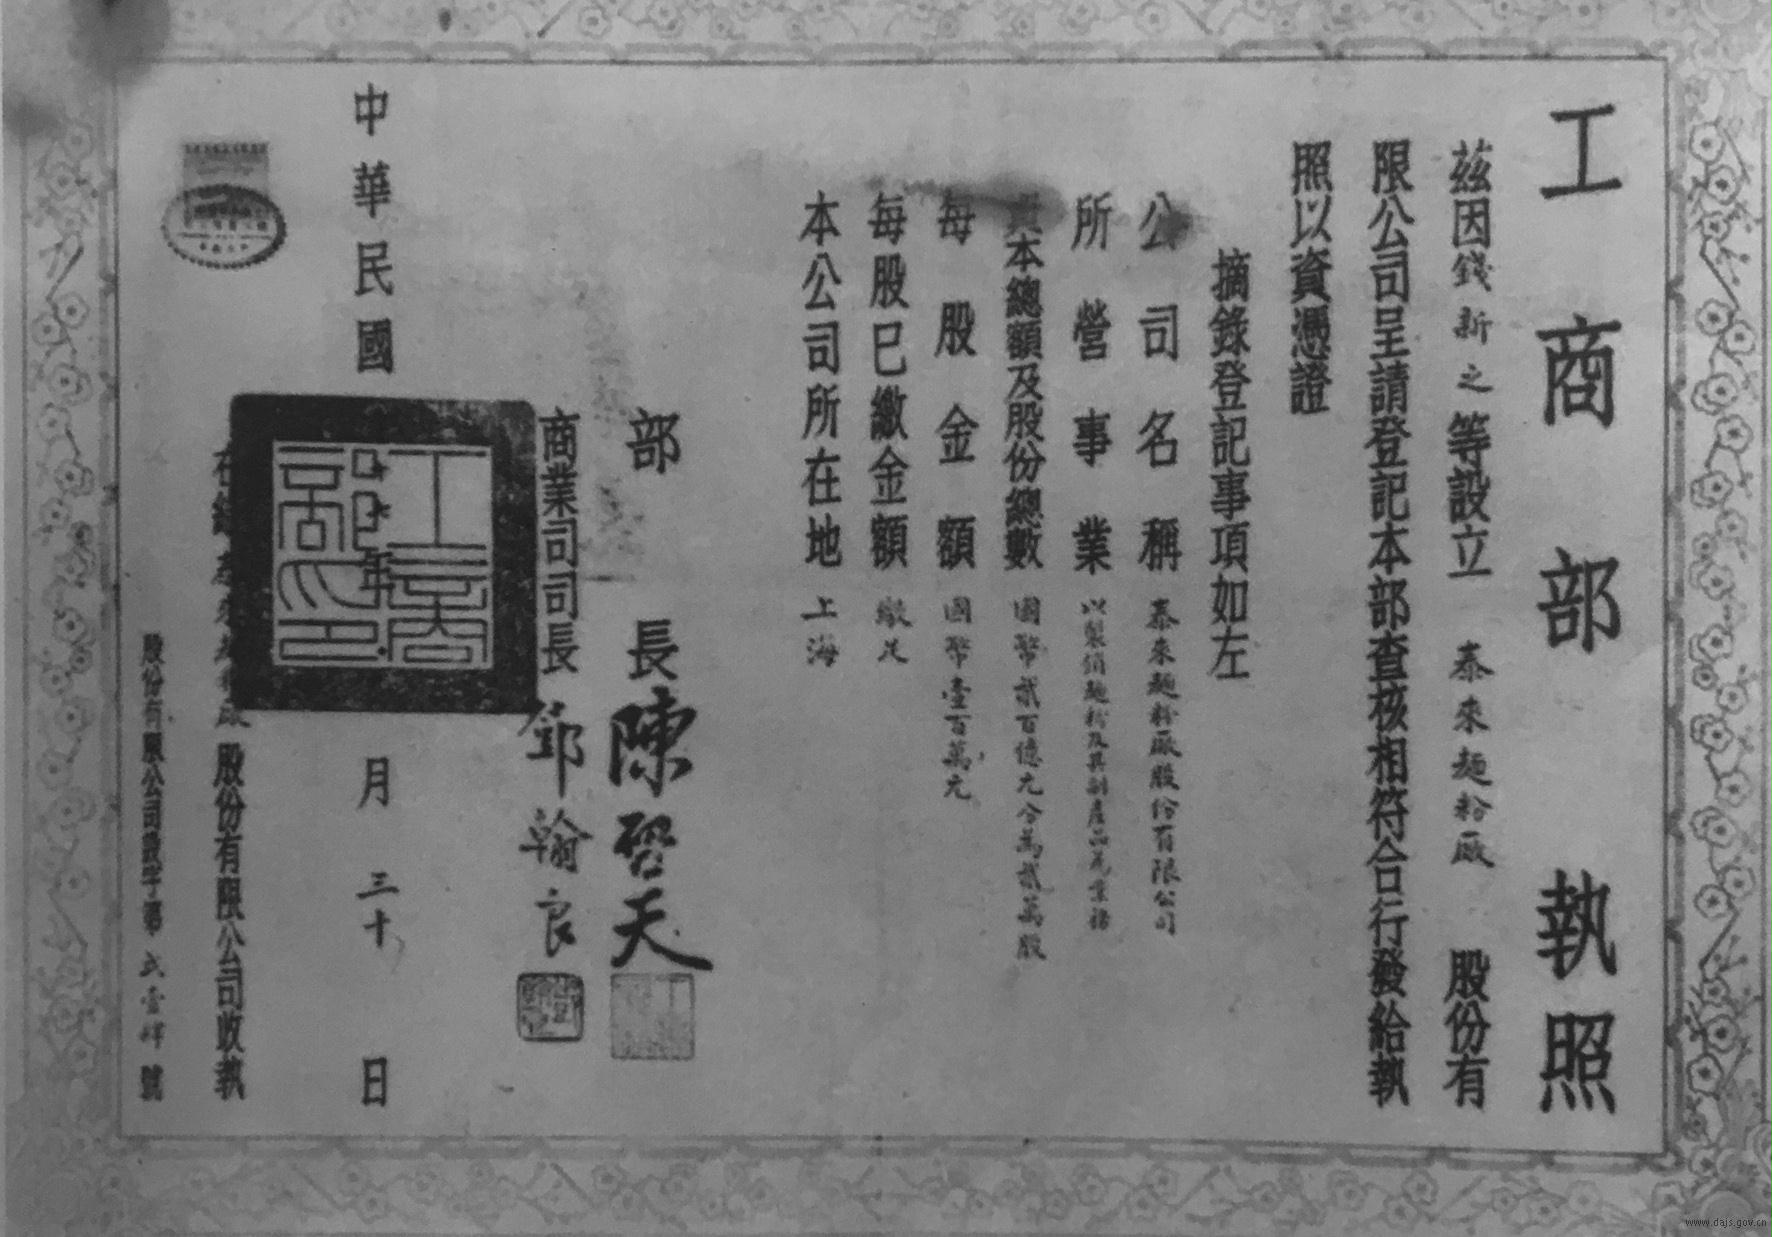 工商部執照
茲因錢新之等設立 泰來麵粉廠 股份有
限公司呈請登記本部查核相符合行發給執
照以資憑證
摘錄登記事項如左
公司名稱 泰來麵粉廠股份有限公司
所營事業 以製銷麵粉及其副產品為業務
資本總額及股份總數 國幣貳百億元分為貳萬股
每股金額 國幣壹百萬元
每股已繳金額 繳足
本公司所在地 上海
部長陳啓天
商業司司長鄧翰良
中華民國 年 月三十日
工商部印
股份有限公司收執
股份有限公司設字第 號
www.dajs.gov.cn